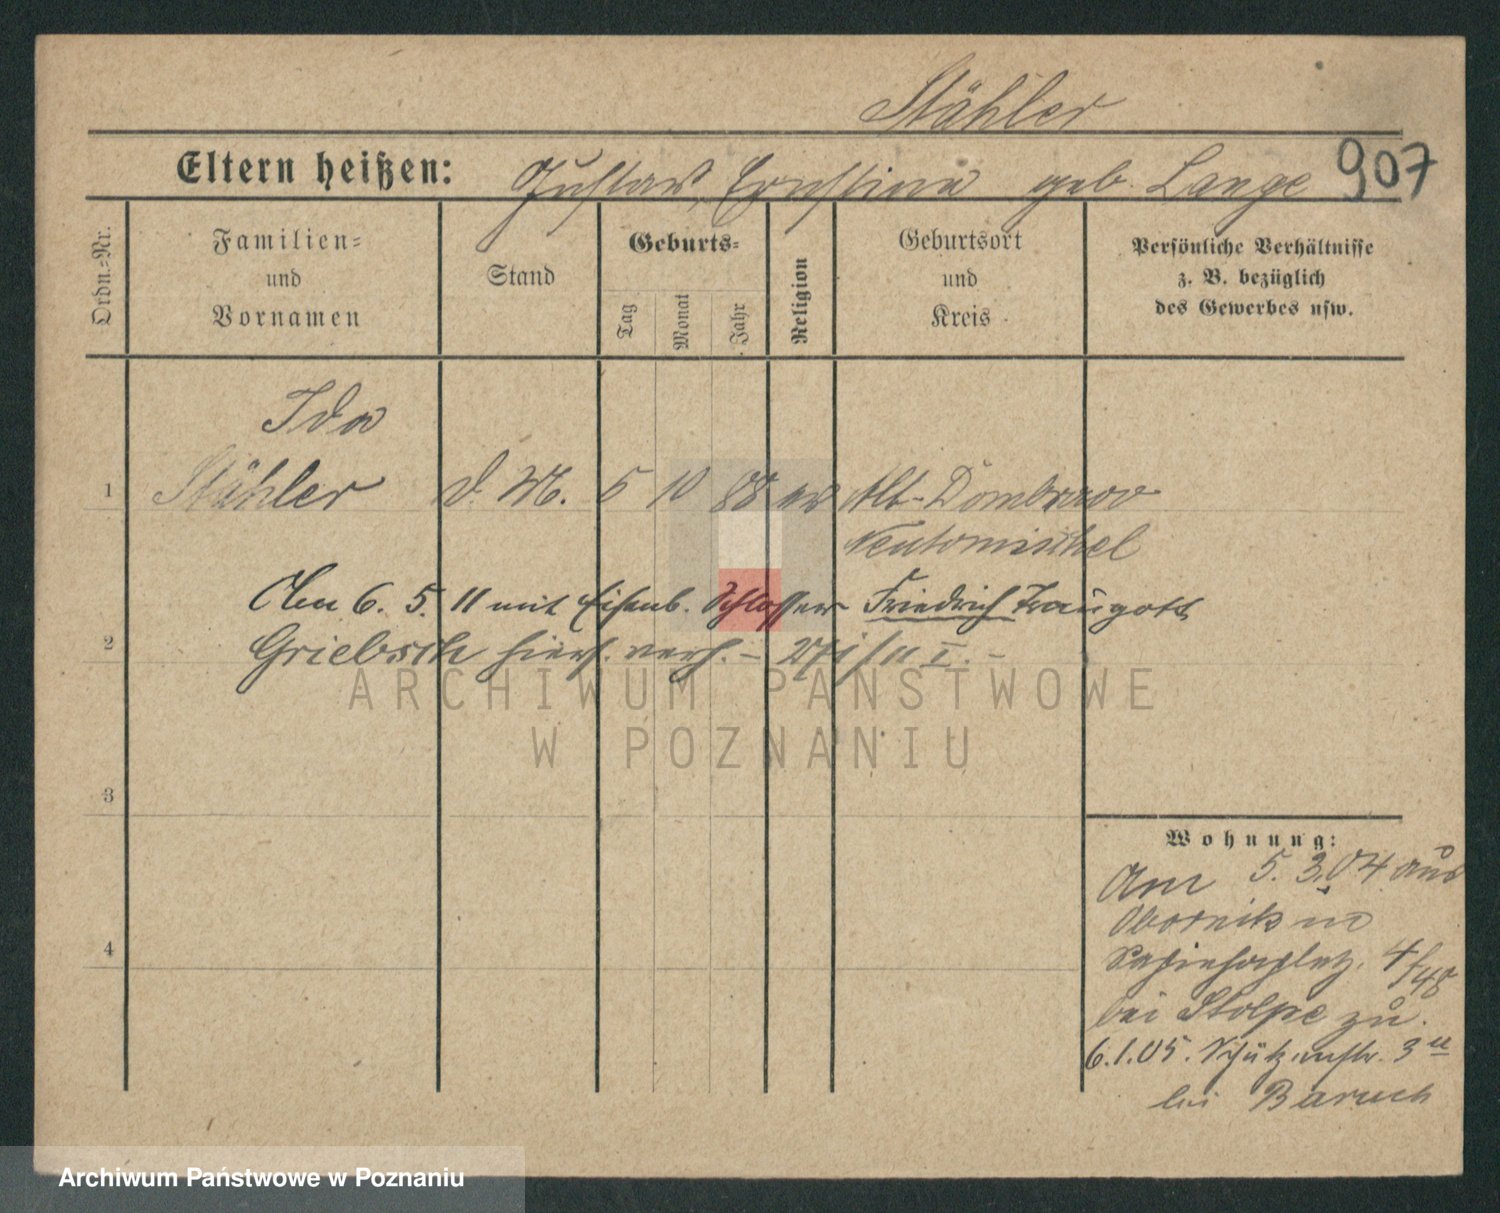 Stähler
Eltern heißen: Gustav, Ernstine geb. Lange 907
Ordn.-Nr.
Familien-
und
Vornamen
Stand
Geburts-
Tag
Monat
Jahr
Religion
Geburtsort
und
Kreis
Persönliche Verhältnisse
z. B. bezüglich
des Gewerbes usw.
Ida
1 Stähler d. M. 5 10 88 ev Alt-Dombrowo
Neutomischel
Am 6. 5. 11 mit Eisenb. Schlosser Friedrich Traugott
2 Griebsch hiers. verh. –
ARCHIWUM PAŃSTWOWE
W POZNANIU
3
Wohnung:
Am 5. 3. 04 aus
Obornik
4 Sapiehaplatz
bei Stolpe zu.
6.1.05. Schützenstr. 3
bei Baruch
Archiwum Państwowe w Poznaniu